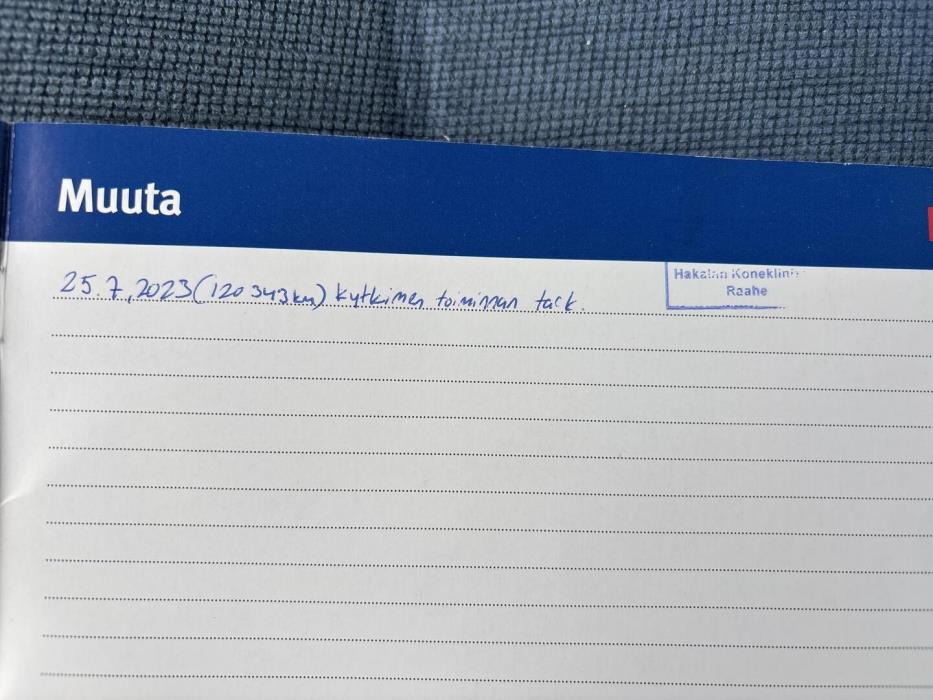 Muuta
25.7.2023 (120 343km) kytkimen toiminnan tark.
Hakalan Koneklini
Raahe